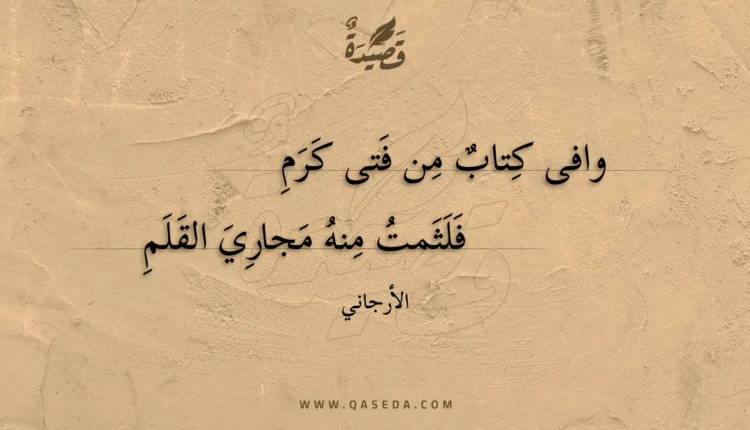 قَصِيدَةٌ
وافى كِتابٌ مِن فَتى كَرَمِ
فَلَثَمتُ مِنهُ مَجارِيَ القَلَمِ
الأرجاني
WWW.QASEDA.COM